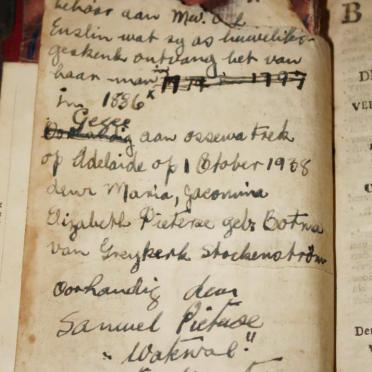 behoor aan Mev.
Enslin wat sy as huweliks-
geskenk ontvang het van
haar man
in 1886 x
Gegee
Oorhandig aan ossewa trek
op Adelaide op 1 Oktober 1938
deur Maria, Jacomina
Elizabeth Pieterse gebr Botma
van Greykerk Stockenström
Oorhandig deur
Samuel Pieterse
"Waterval."
B
D
VER
De